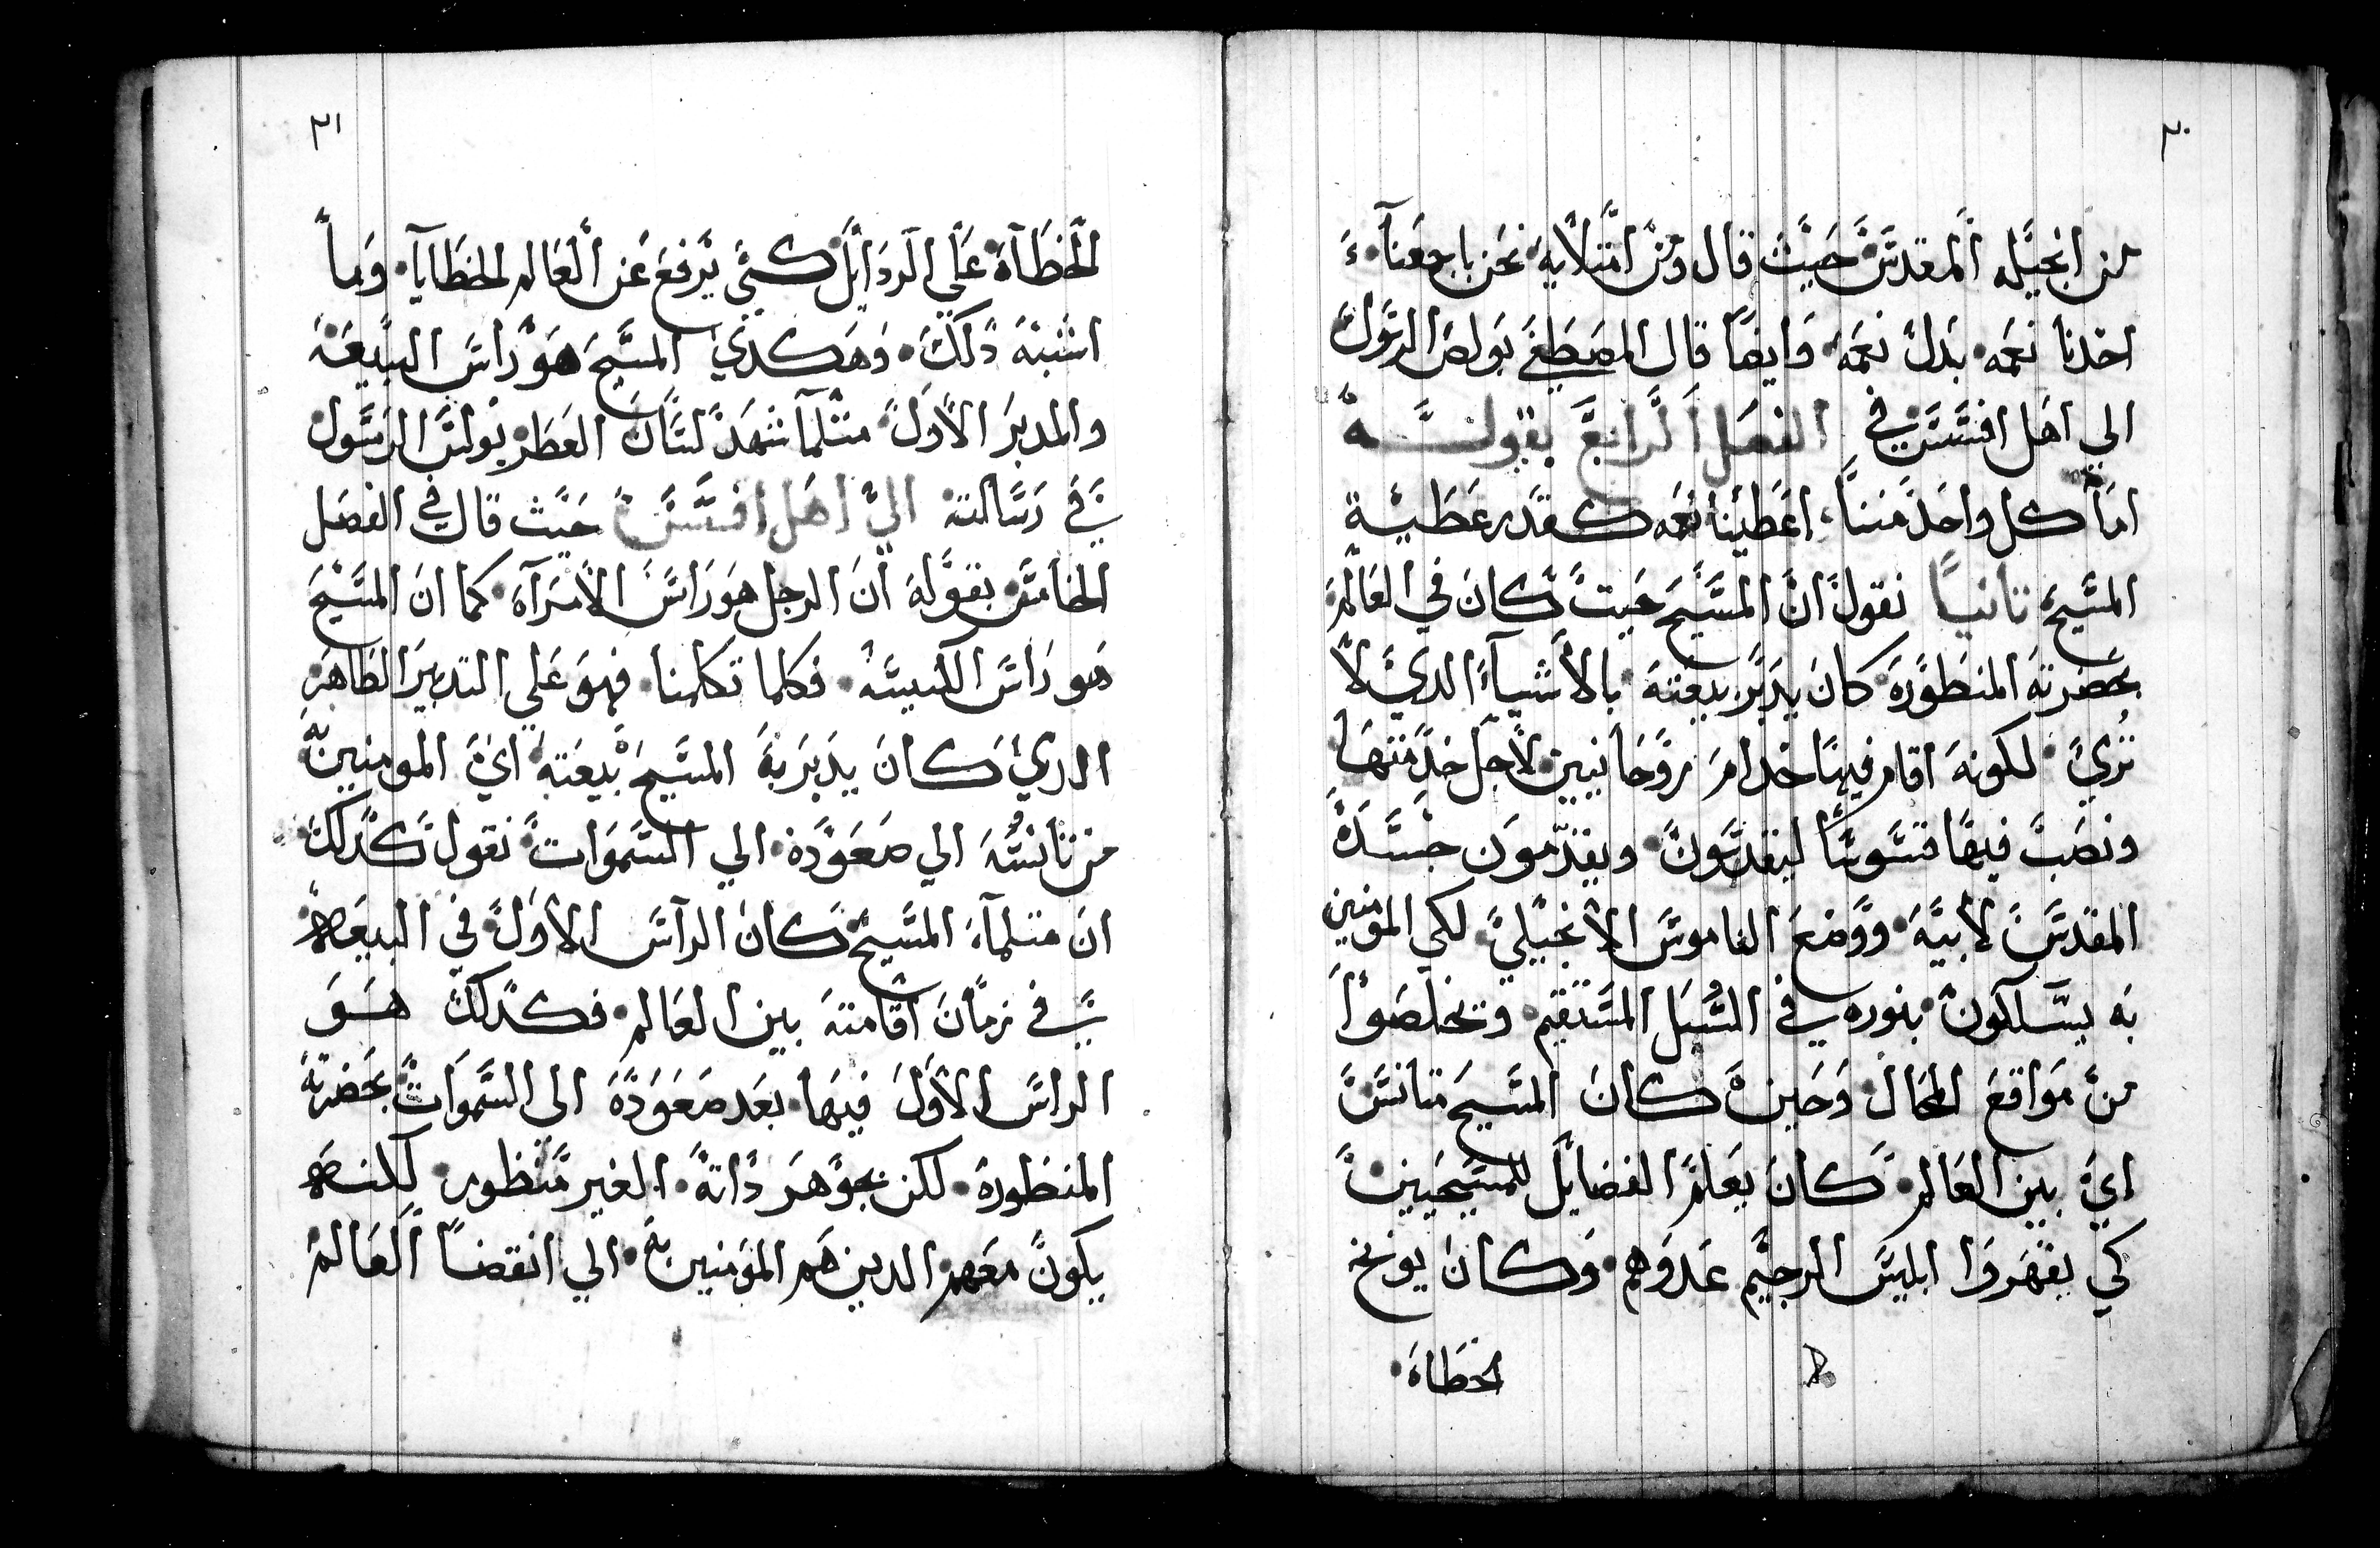 ٣٠
من انجيله المقدس حيث قال ومن امتلايه نحن باجمعنا
اخدنا نعمه بدل نعمه وايضًا قال المصطفي بولص الرسول
الي اهل افسس في الفصل الرابع بقوله
اما كل واحد مننا اعطينا نعمه كقدر عطية
المسيح ثانيًا نقول ان المسيح حيت كان في العالم
بحضرته المنظوره كان يدبر بيعته بالاشياء الدي لا
تري لكونه اقام فيها خدام روحانيين لاجل خدمتها
ونصب فيها قسوسًا ليقدسون ويقدمون جسده
المقدس لابيه ووضع الناموس الانجيلي لكي المومنين
به يسلكون بنوره في السبل المستقيم وتخلصوا
من مواقع المحال وحين كان المسيح متانس
اي بين العالم كان يعلم الفضايل للمسيحيين
كي يقهروا ابليس الرجيم عدوهم وكان يوبخ
الخطاه
٣١
الخطاة علي الردايل كيي يرفع عن العالم الخطايا وما
اشبه دلك وهكدي المسيح هو راس البيعه
والمدبر الاول متلما شهد لسان العطر بولس الرسول
في رسالته الي اهل افسس حيث قال في الفصل
الخامس بقوله ان الرجل هو راس الامراه كما ان المسيح
هو راس الكنيسه فكلما تكلمنا فهو علي التدبير الظاهر
الدي كان يدبر به المسيح بيعته اي المومنين به
من تانسه الي صعوده الي السموات نقول كدلك
ان متلما المسيح كان الراس الاول في البيعه
في زمان اقامته بين العالم فكدلك هو
الراس الاول فيها بعد صعوده الى السموات بحضرته
المنظوره لكن بجوهر داته الغير منظور لكنه
يكون معهم الدين هم المومنين به الي انقضا العالم